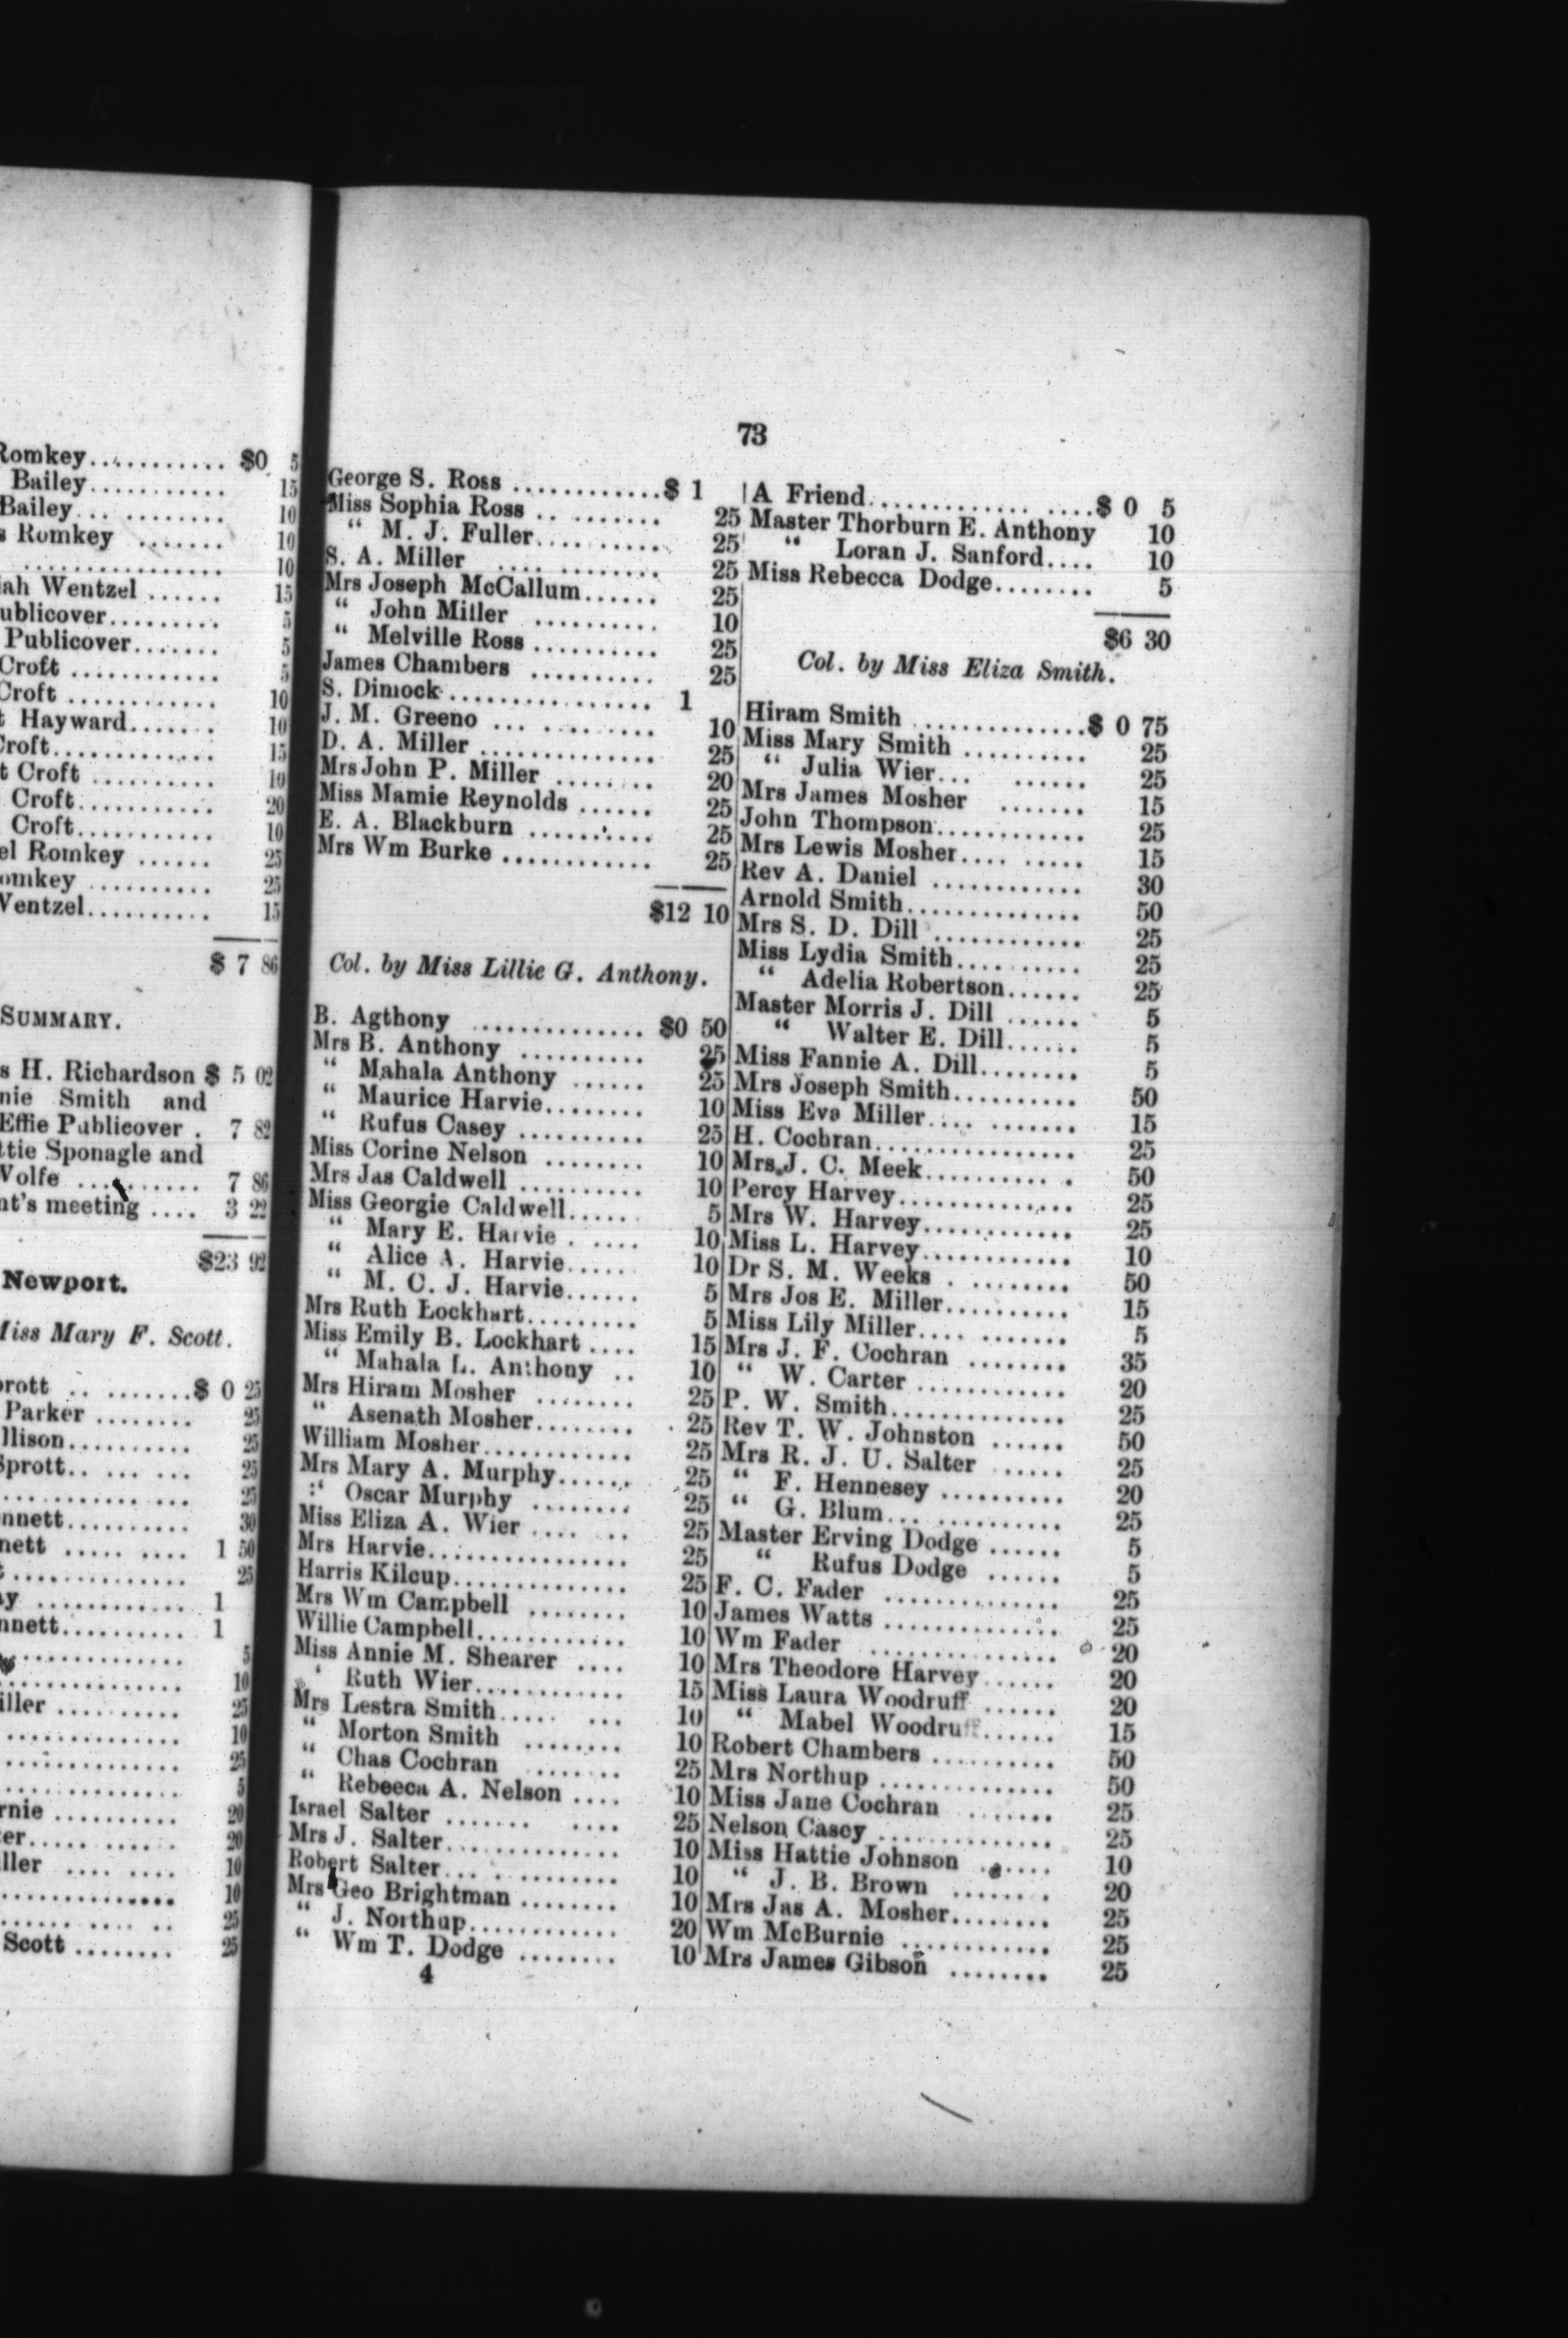 Romkey........... $0 5
Bailey........... 15
Bailey... ........ 10
s Romkey ....... 10
................ 10
iah Wentzel ...... 15
ublicover......... 5
Publicover....... 5
Croft ............ 5
Croft ............ 10
t Hayward....... 10
Croft............ 15
t Croft .......... 10
Croft........... 20
Croft........... 10
el Romkey ...... 25
omkey .......... 25
Wentzel.......... 15
$ 7 86
SUMMARY.
s H. Richardson $ 5 02
nie Smith and
Effie Publicover . 7 82
ttie Sponagle and
Wolfe .......... 7 86
nt's meeting .... 3 22
$23 92
Newport.
Miss Mary F. Scott.
prott .. ........$ 0 25
Parker ........ 25
llison.......... 25
Sprott.. ... ... 25
................ 25
nnett.......... 30
nett ..... .... 1 50
............... 25
y ............ 1
nnett.......... 1
............. 5
............... 10
iller .......... 25
............... 10
............... 25
............... 5
rnie .......... 20
er..... ....... 20
ller .... .... 10
.............. 10
...... .... .. 25
Scott ........ 25
73
George S. Ross ............$ 1
Miss Sophia Ross .. ........ 25
“ M. J. Fuller........... 25
S. A. Miller .... ......... 25
Mrs Joseph McCallum...... 25
“ John Miller .......... 10
“ Melville Ross .......... 25
James Chambers .......... 25
S. Dimock................. 1
J. M. Greeno ... ......... 10
D. A. Miller .............. 25
Mrs John P. Miller ........ 20
Miss Mamie Reynolds ...... 25
E. A. Blackburn .......... 25
Mrs Wm Burke ............ 25
$12 10
Col. by Miss Lillie G. Anthony.
B. Agthony .............. $0 50
Mrs B. Anthony .......... 25
“ Mahala Anthony ...... 25
“ Maurice Harvie........ 10
“ Rufus Casey .......... 25
Miss Corine Nelson ........ 10
Mrs Jas Caldwell .......... 10
Miss Georgie Caldwell...... 5
“ Mary E. Harvie . .... 10
“ Alice A. Harvie...... 10
“ M. C. J. Harvie...... 5
Mrs Ruth Lockhart......... 5
Miss Emily B. Lockhart .... 15
“ Mahala L. Anthony .. 10
Mrs Hiram Mosher ........ 25
“ Asenath Mosher........ 25
William Mosher............ 25
Mrs Mary A. Murphy...... 25
“ Oscar Murphy ........ 25
Miss Eliza A. Wier .... .. 25
Mrs Harvie................ 25
Harris Kilcup.............. 25
Mrs Wm Campbell ........ 10
Willie Campbell............ 10
Miss Annie M. Shearer .... 10
“ Ruth Wier............ 15
Mrs Lestra Smith..... ... 10
“ Morton Smith ........ 10
“ Chas Cochran ........ 25
“ Rebeeca A. Nelson .... 10
Israel Salter ....... .... 25
Mrs J. Salter.............. 10
Robert Salter... .......... 10
Mrs Geo Brightman ........ 10
“ J. Northup............ 20
“ Wm T. Dodge ........ 10
4
A Friend.............. ....$ 0 5
Master Thorburn E. Anthony 10
“ Loran J. Sanford.... 10
Miss Rebecca Dodge........ 5
$6 30
Col. by Miss Eliza Smith.
Hiram Smith ..............$ 0 75
Miss Mary Smith .......... 25
“ Julia Wier... ...... 25
Mrs James Mosher ....... 15
John Thompson............ 25
Mrs Lewis Mosher.... ..... 15
Rev A. Daniel ............ 30
Arnold Smith.............. 50
Mrs S. D. Dill ............ 25
Miss Lydia Smith.......... 25
“ Adelia Robertson...... 25
Master Morris J. Dill ...... 5
“ Walter E. Dill...... 5
Miss Fannie A. Dill........ 5
Mrs Joseph Smith.......... 50
Miss Eva Miller.... ....... 15
H. Cochran................ 25
Mrs J. C. Meek.......... . 50
Percy Harvey.............. 25
Mrs W. Harvey............ 25
Miss L. Harvey............ 10
Dr S. M. Weeks . ........ 50
Mrs Jos E. Miller.......... 15
Miss Lily Miller.... ....... 5
Mrs J. F. Cochran ........ 35
“ W. Carter ............ 20
P. W. Smith.............. 25
Rev T. W. Johnston ...... 50
Mrs R. J. U. Salter ..... 25
“ F. Hennesey .......... 20
“ G. Blum... .......... 25
Master Erving Dodge ...... 5
“ Rufus Dodge ...... 5
F. C. Fader .............. 25
James Watts .............. 25
Wm Fader ................ 20
Mrs Theodore Harvey...... 20
Miss Laura Woodruff ...... 20
“ Mabel Woodruff...... 15
Robert Chambers .......... 50
Mrs Northup .............. 50
Miss Jane Cochran ....... 25
Nelson Casey .............. 25
Miss Hattie Johnson ...... 10
“ J. B. Brown ....... 20
Mrs Jas A. Mosher........ 25
Wm McBurnie ............ 25
Mrs James Gibson ........ 25